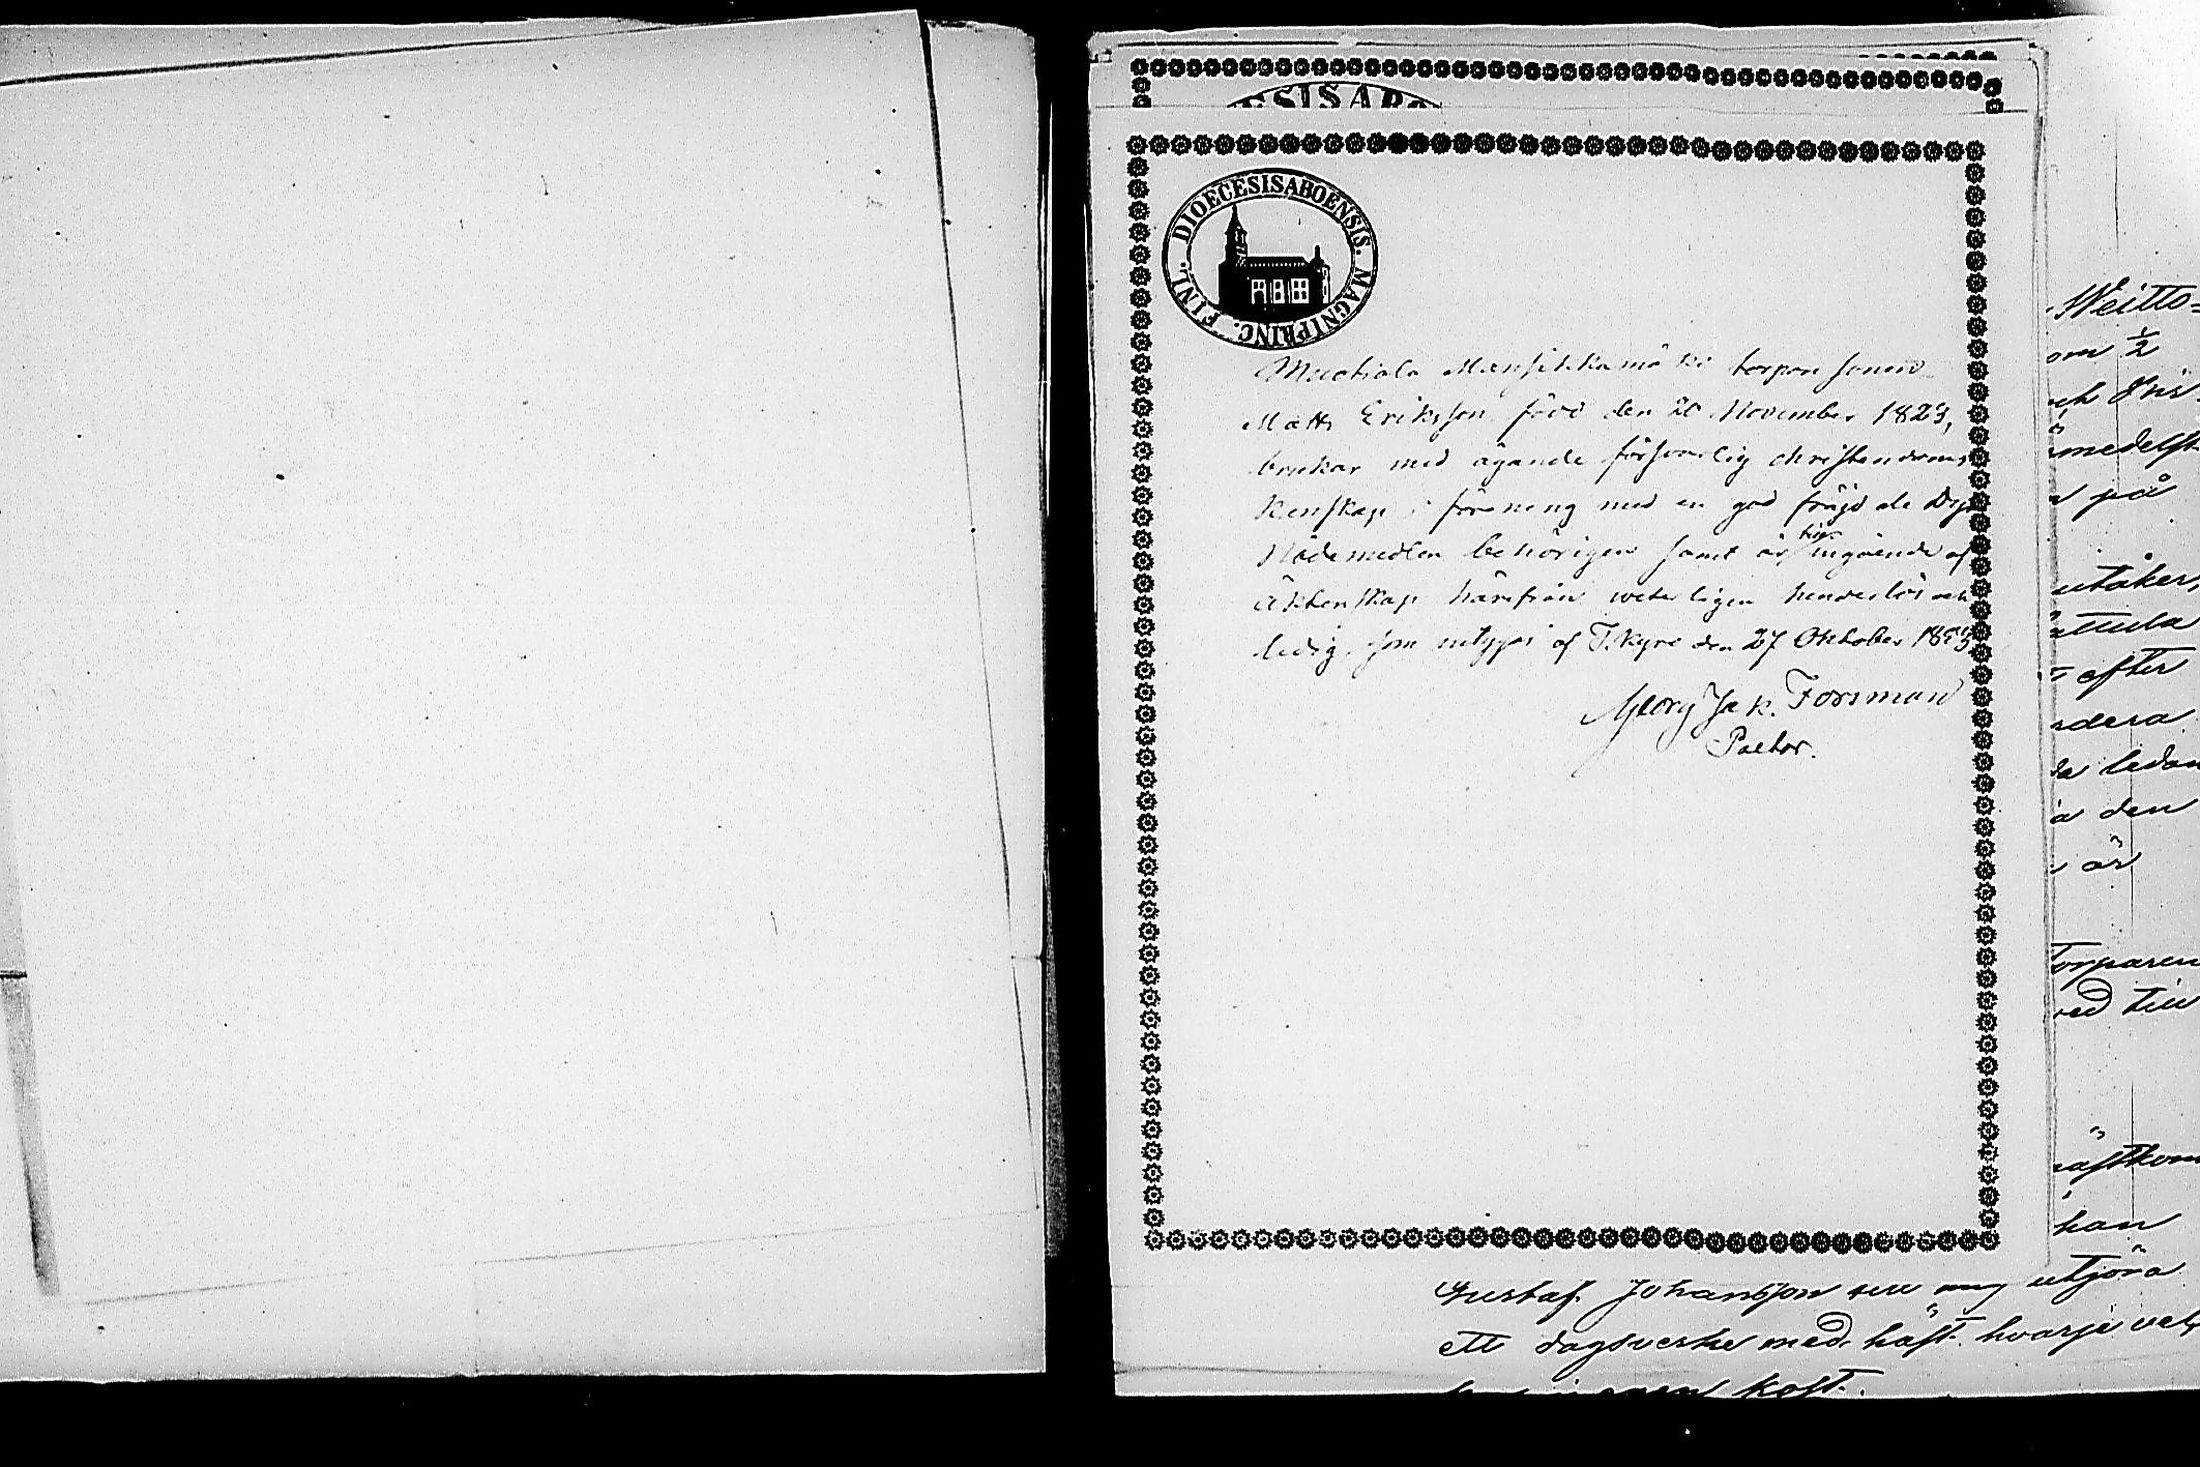 ESISABO
DIOECESISABOENSIS. MAGNIPRINC. FINL.
Mansikkamäki torpare sonen
Matts Eriksson född den 20 November 1823,
brukar med ägande försvarlig christendoms
kenskap i förening med en god fräjd de Dyr
Nådemedlen behörigen samt är till ingående af
Äktenskap härifrån veterligen hinderlös och
ledig, som intygas af T.kyro den 27 Oktober 1853
Georg Jak. Forsman
Pastor.
Weitto=
om 1/2
ch Kris
medelst
på
utåker,
attula
efter
ledan
den
är
Torparen
ved till
han
Gustaf Johansson utgöra
ett dagsverke med häst hvarje vec
kost.